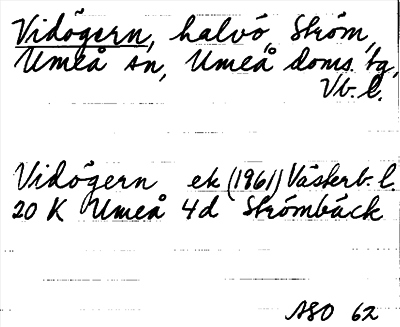 Vidögern, halvö, Ström,
Umeå sn, Umeå doms. tg,
Vb. l.
Vidögern ek (1961) Västerb. l.
20 K Umeå 4d Strömbäck
ASO 62